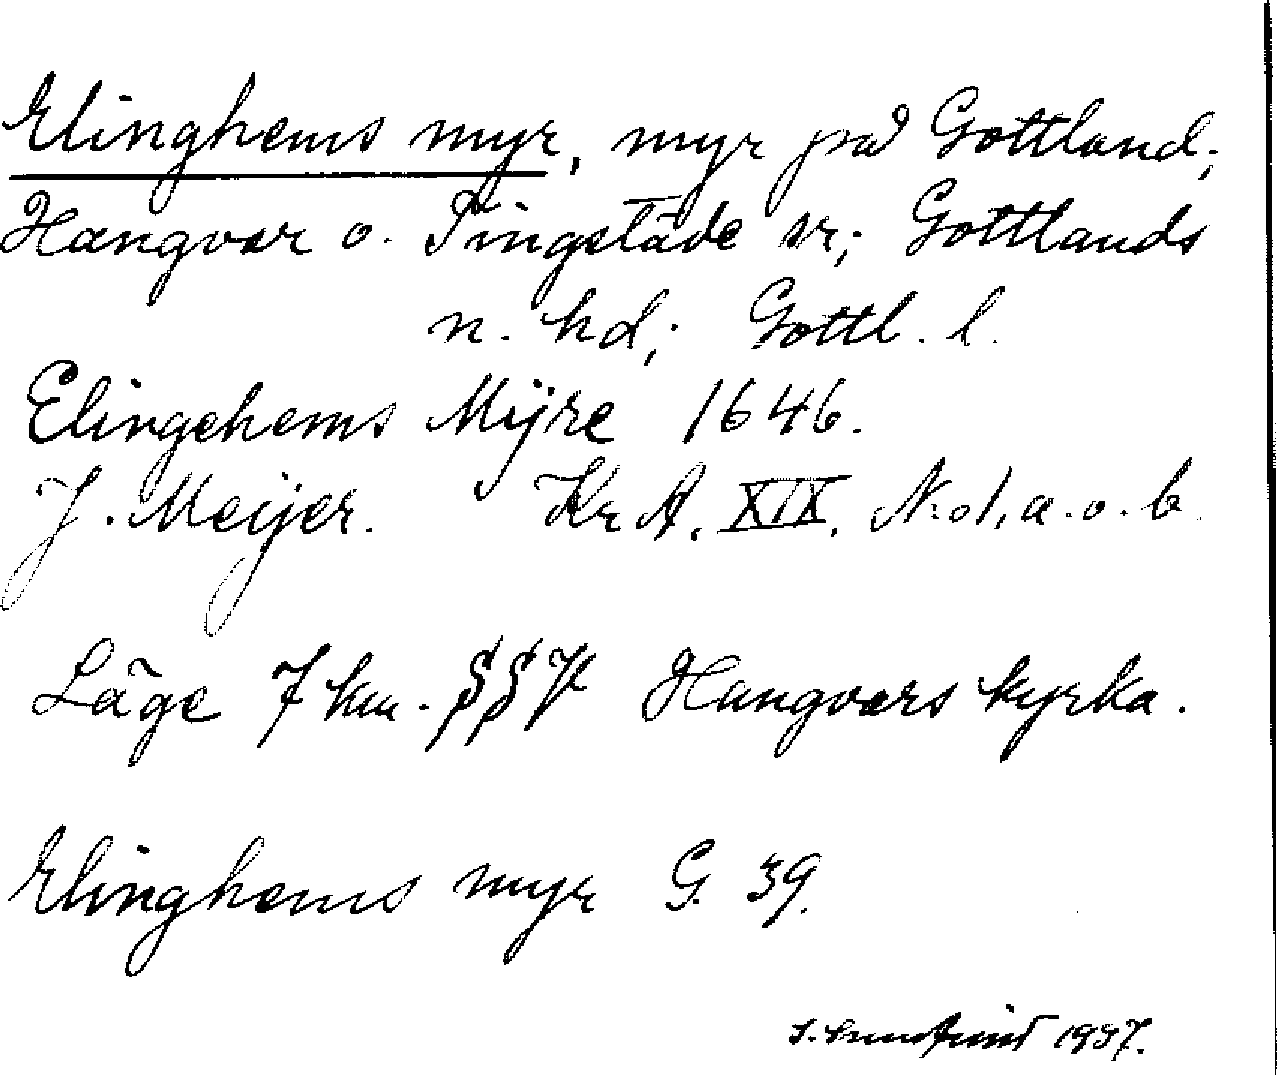 Elinghems myr, myr på Gottland;
Hangvar o. Tingstäde sr; Gottlands
n. hd; Gottl. l.
Elingehems Mÿre 1646.
J. Meijer. Kr A. XIX. N:o 1, a. o. b.
Läge 7 km. SSV Hangvars kyrka.
Elinghems myr G. 39.
1937.